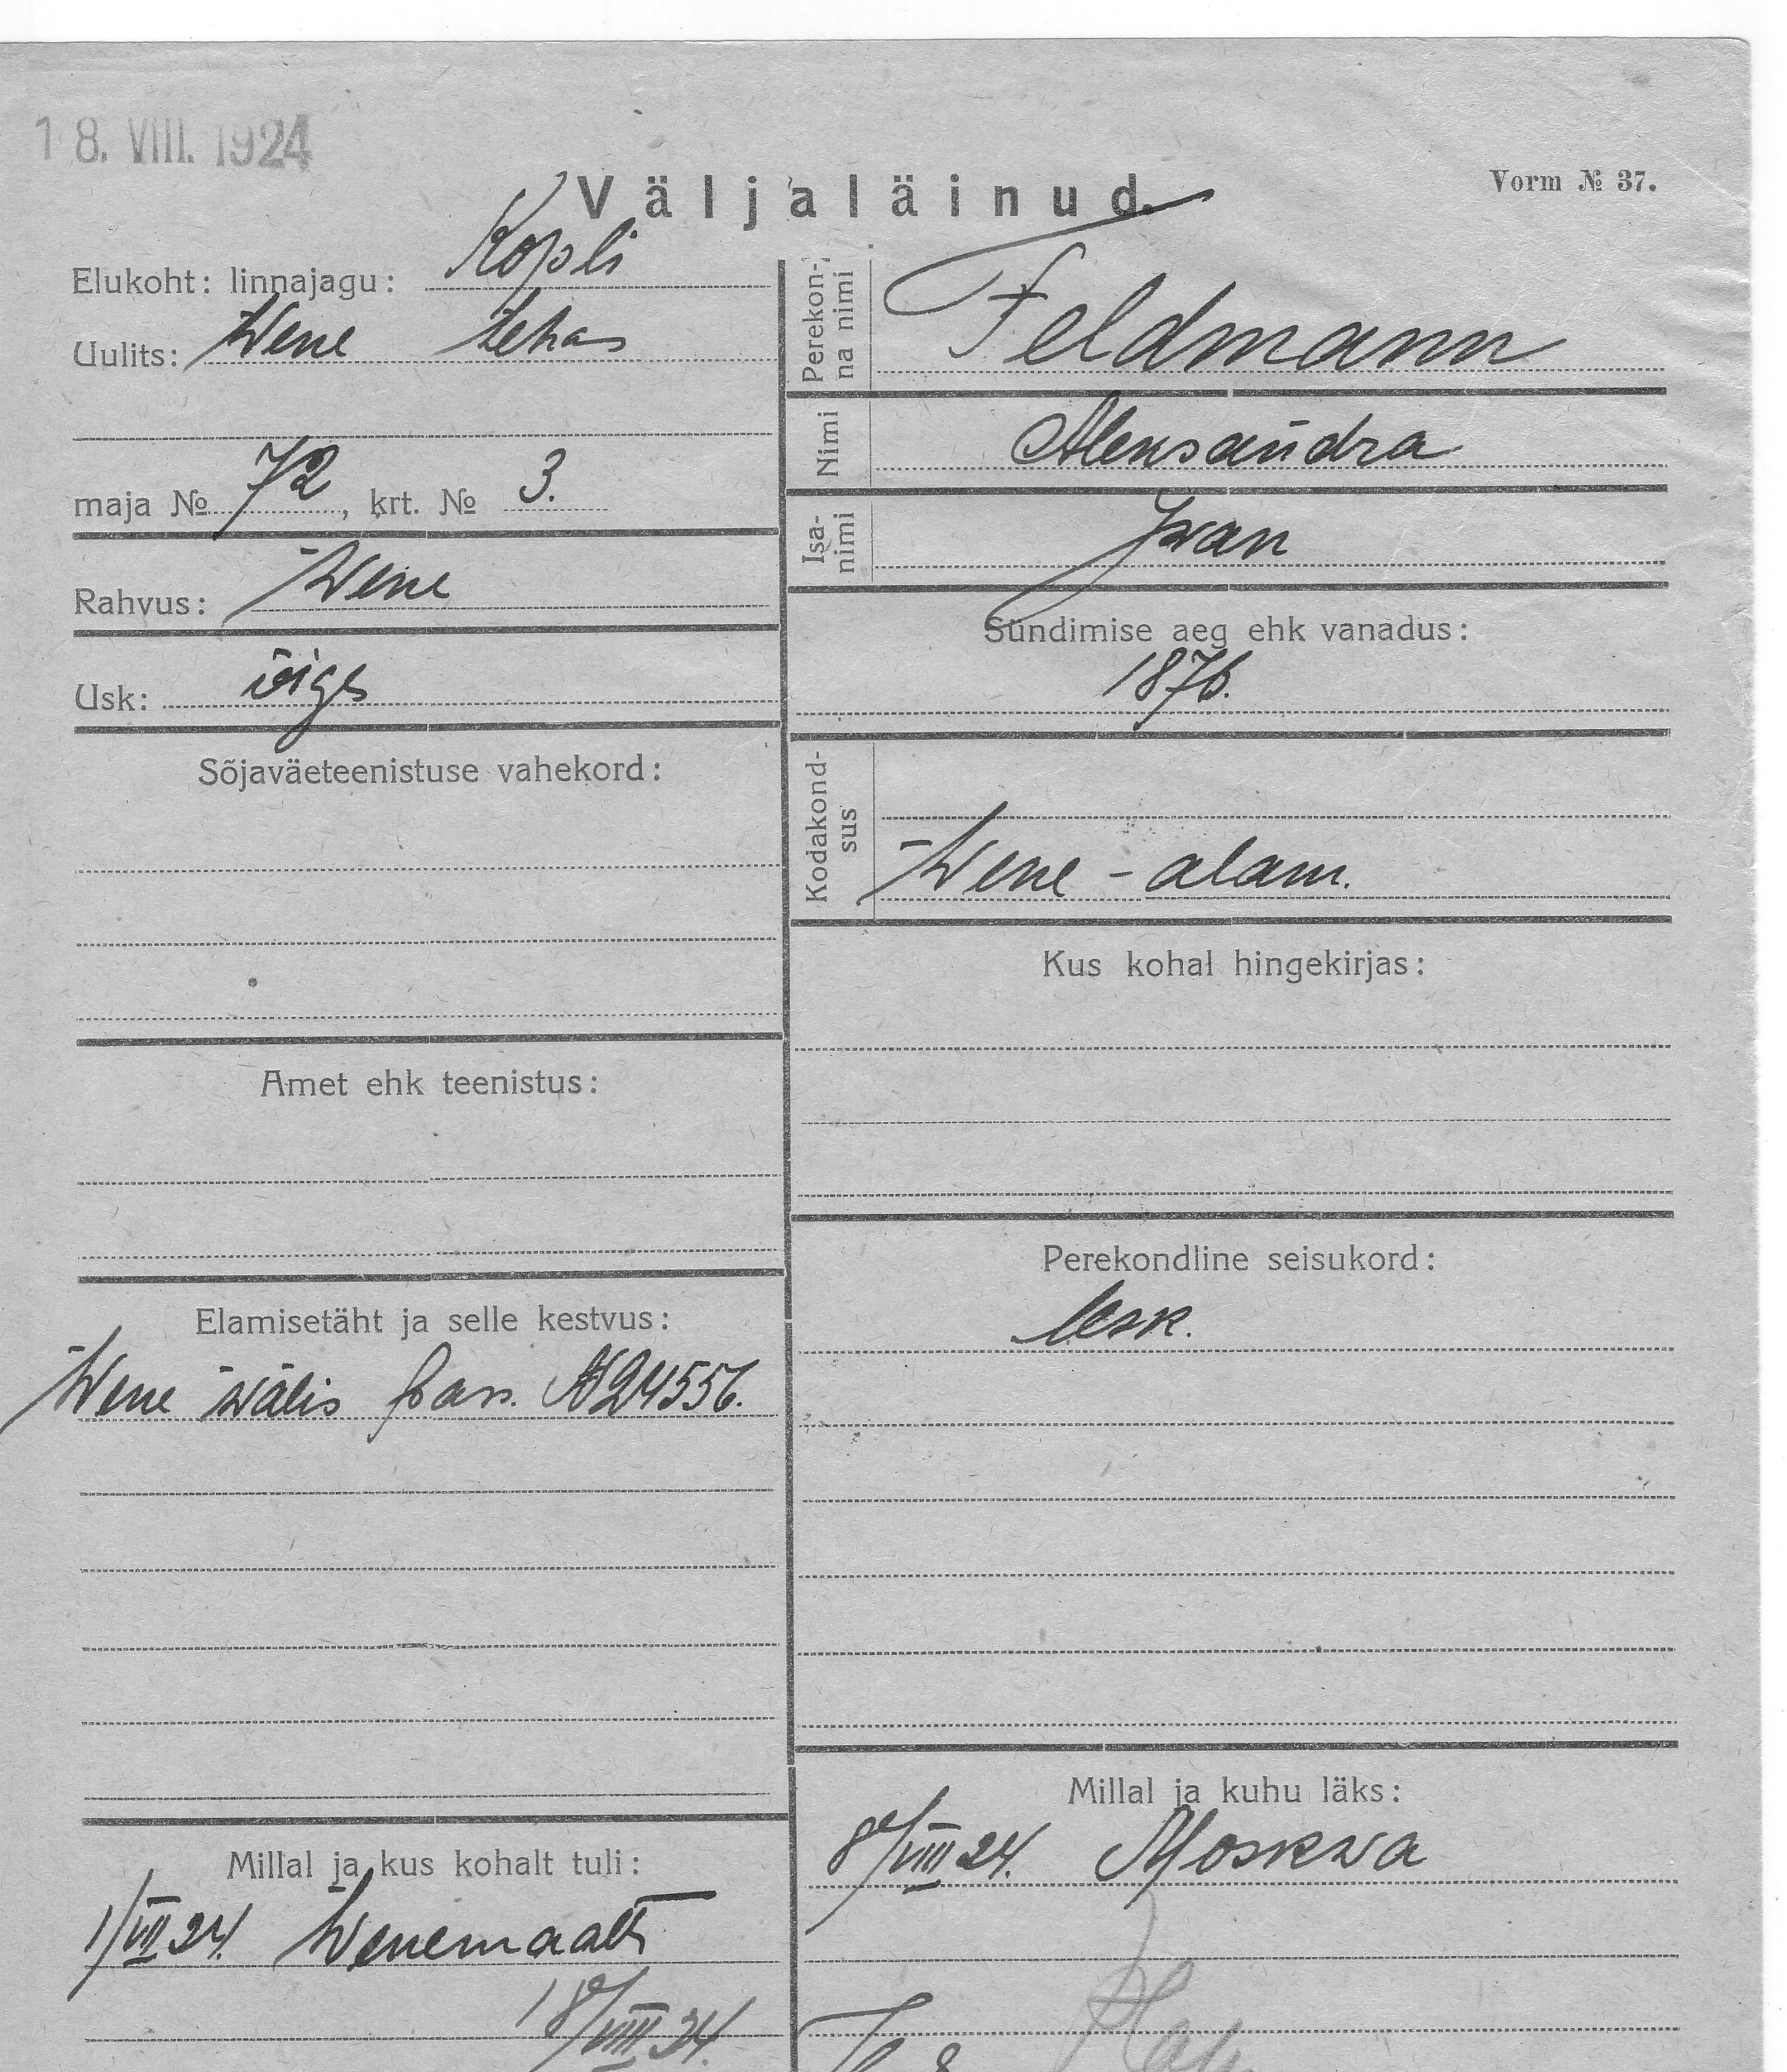 18. VIII. 1924
Väljaläinud.
Vorm № 37.
Elukoht: linnajagu: Kopli
Uulits: Wene tehas
maja № 72, krt. № 3.
Rahvus: Wene
Usk: õigs
Sõjaväeteenistuse vahekord:
Amet ehk teenistus:
Elamisetäht ja selle kestvus:
Wene wälis pass. N24556.
Millal ja kus kohalt tuli:
1/VII 24. Wenemaalt
18/VIII 24.
Perekonna nimi Feldmann
Nimi Aleksandra
Isanimi Iwan
Sündimise aeg ehk vanadus:
1876.
Kodakondsus
Wene-alam.
Kus kohal hingekirjas:
Perekondline seisukord:
lesk.
Millal ja kuhu läks:
8/VIII 24. Moskwa